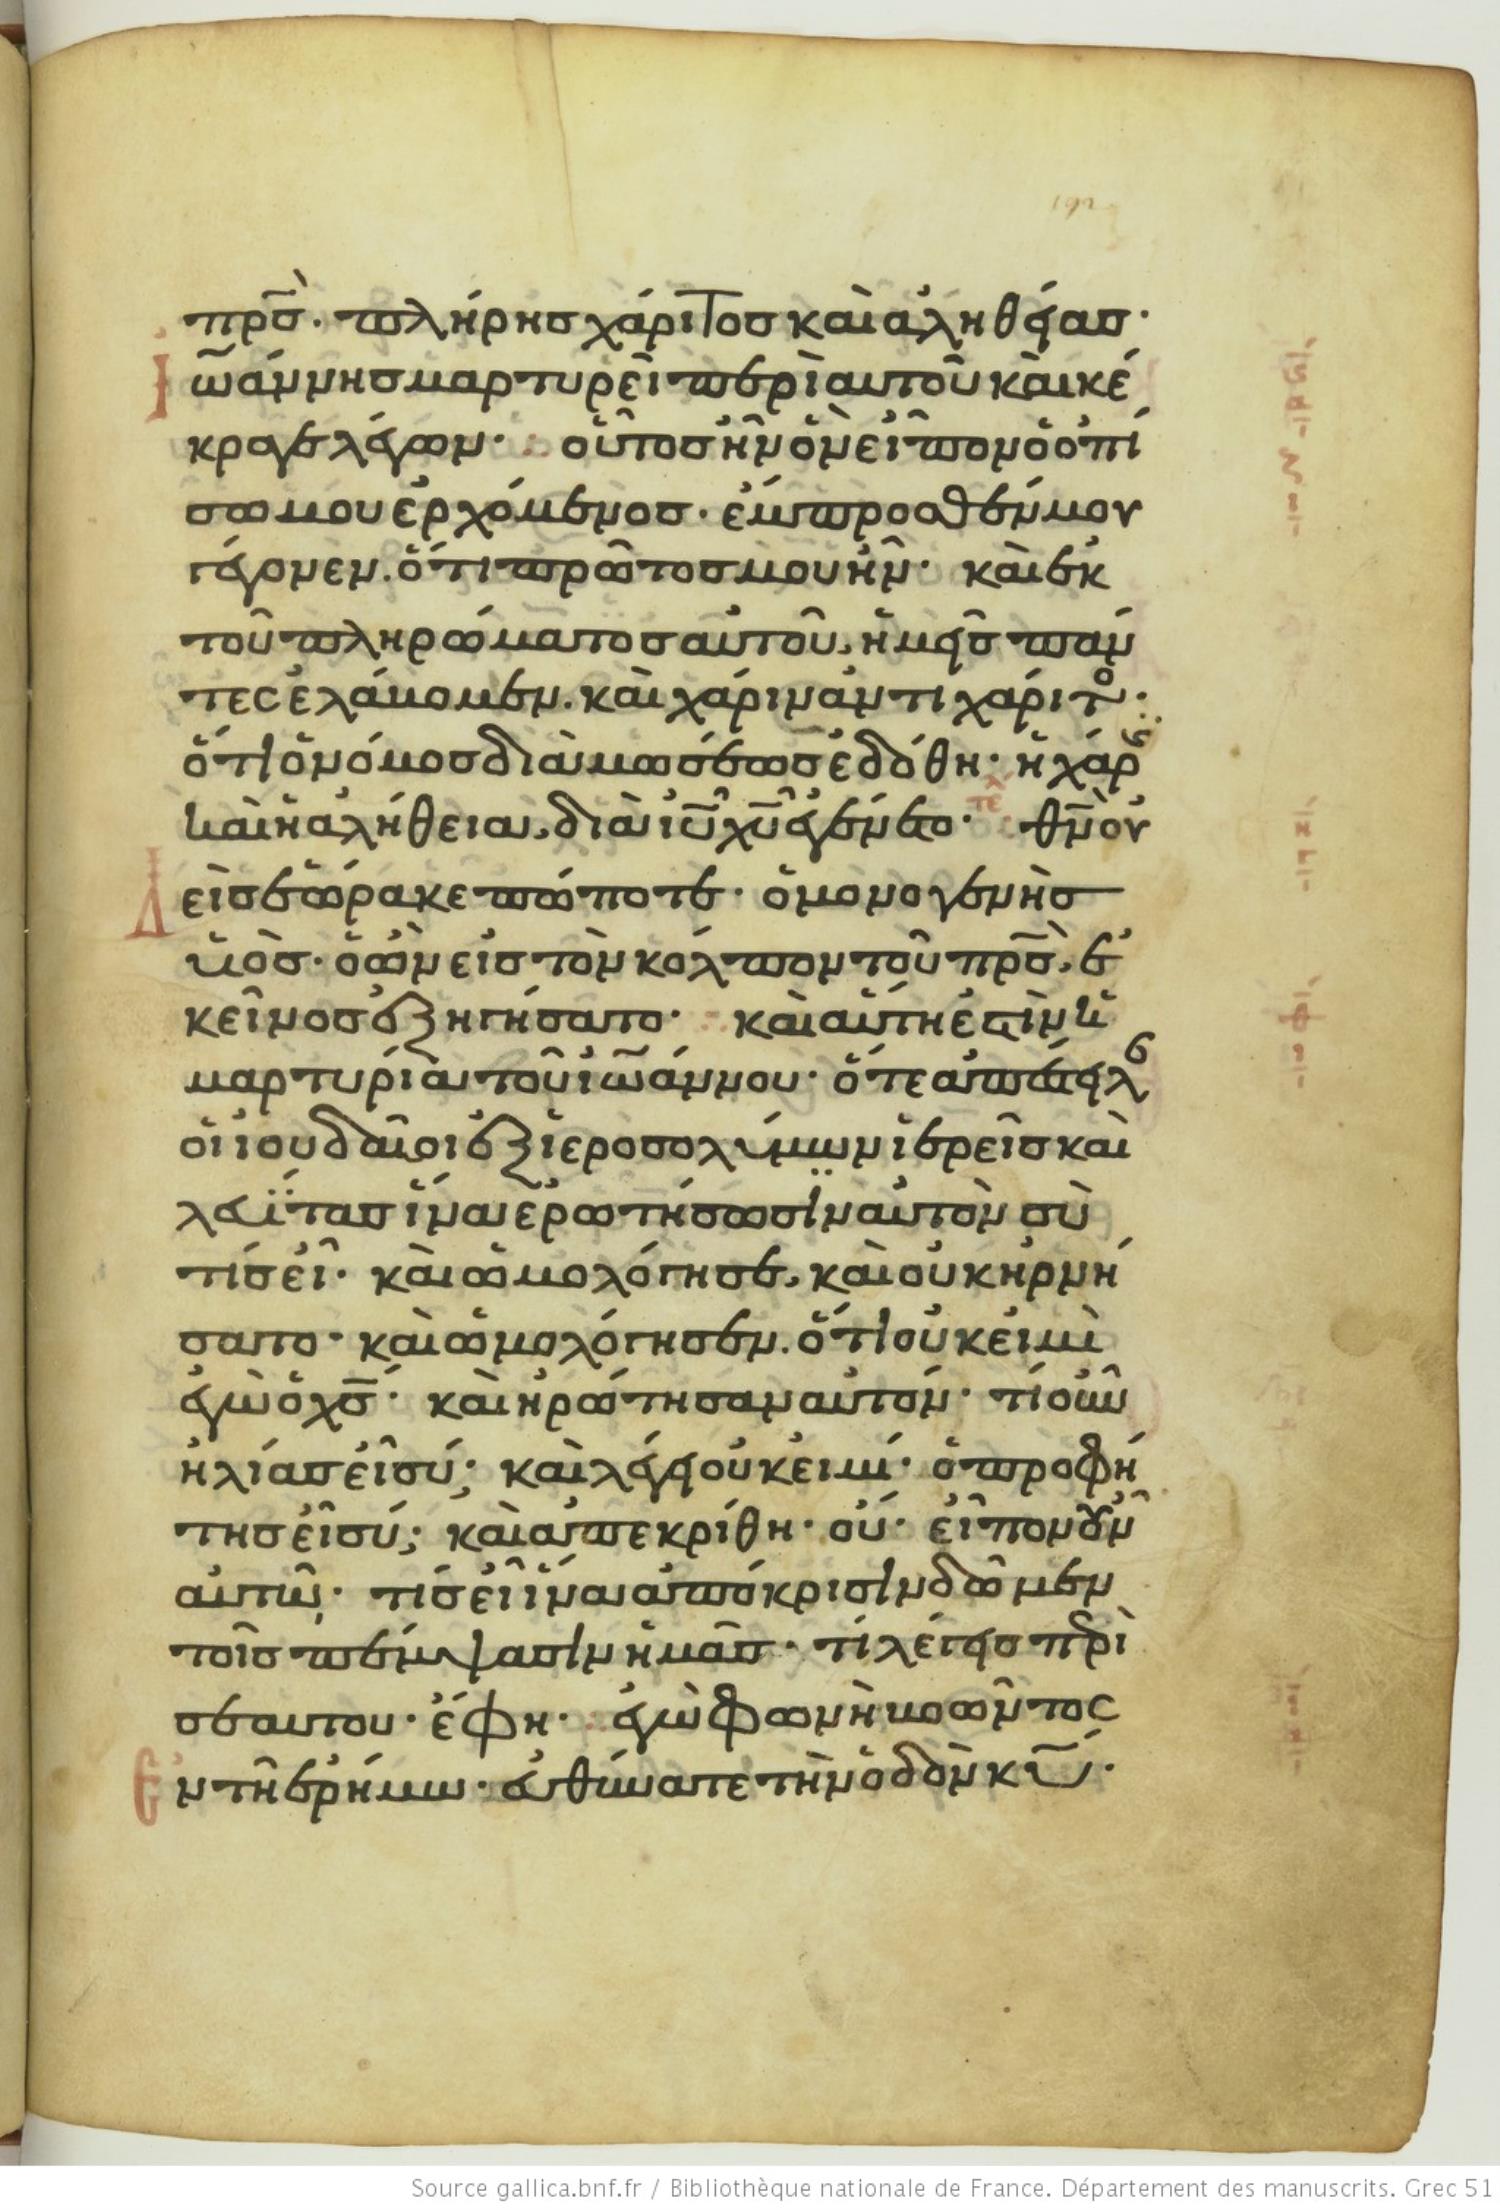 192
πρ̅σ̀. πλήρης χάριτος καὶ ἀληθείας·
Ἰω̅άννης μαρτυρεῖ περὶ αὐτοῦ καὶ κέ
κραγε λέγων· οὗτος ἦν ὃν εἶπον ὁ ὀπί
σω μου ἐρχόμενος· ἔμπροσθέν μου
γέγονεν. ὅτι πρῶτος μου ἦν· καὶ ἐκ
τοῦ πληρώματος αὐτοῦ, ἡμεῖς πάν
τες ἐλάβομεν. καὶ χάριν ἀντὶ χάριτο·
ὅτι ὁ νόμος διὰ μωσέως ἐδόθη· ἡ χάρ
τε
καὶ ἡ ἀλήθεια, διὰ ἰ̅υ̅ χ̅υ̅ ἐγένετο· θ̅ν̅ ου
εὶς ἑώρακε πώποτε· ὁ μονογενὴς
υἱὸς· ὁ ὢν εἰς τὸν κόλπον τοῦ πρ̅σ̀, ἐ
κεῖνος ἐξηγήσατο· καὶ αὕτη ἐστὶν ἡ
μαρτυρία τοῦ ἰω̅άννου· ὅτε ἀπέστειλε
οἱ ἰουδαῖοι ἐξ ἱεροσολύμων ἱερεῖς καὶ
λευΐτας ἵνα ἐρωτήσωσιν αὐτὸν σὺ
τίς εἶ· καὶ ὡμολόγησε, καὶ οὐκ ἠρνή
σατο· καὶ ὡμολόγησεν. ὅτι οὐκ εἰμὶ
ἐγὼ ὁ χ̅ς̅· καὶ ἠρώτησαν αὐτόν· τί οὖν
ἠλίας εἶ σύ; καὶ λέγει οὐκ εἰμί· ὁ προφή
της εἶ σύ; καὶ ἀπεκρίθη· οὐ· εἶπον οὖν
αὐτῷ· τίς εἶ ἵνα ἀπόκρισιν δῶμεν
τοῖς πέμψασιν ἡμᾶς· τί λέγεις πὲρὶ
σεαυτου· ἔφη· ἐγὼ φωνὴ βοῶντος
Ἐν τῇ ἐρήμω· εὐθύνατε τὴν ὁδὸν κ̅υ̅·